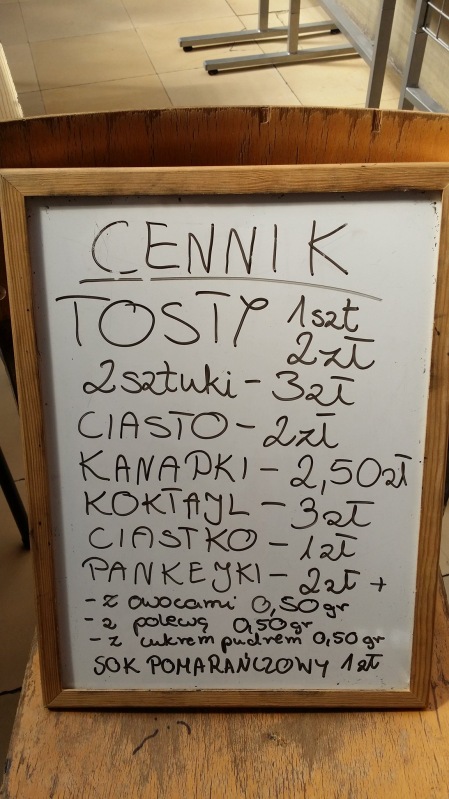 CENNIK
TOSTY 1szt
2zł
2sztuki - 3zł
CIASTO - 2zł
KANAPKI - 2,50zł
KOKTAJL - 3zł
CIASTKO - 1zł
PANKEJKI - 2zł +
- z owocami 0,50gr
- z polewą 0,50gr
- z cukrem pudrem 0,50gr
SOK POMARAŃCZOWY 1zł